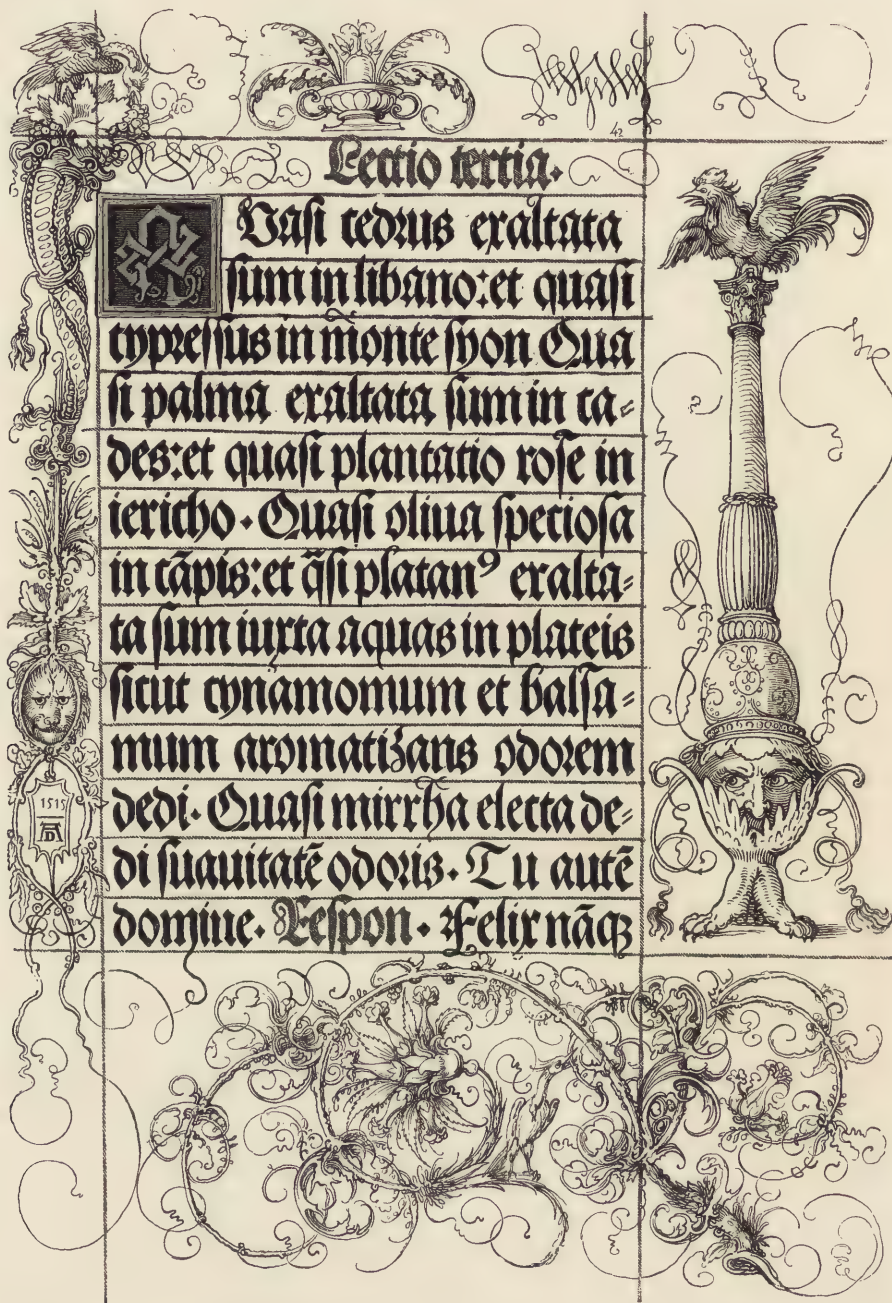 42
Lectio tertia.
QUasi cedrus exaltata
sum in libano: et quasi
cypressus in monte syon Qua
si palma exaltata sum in ca=
des: et quasi plantatio rose in
iericho. Quasi oliua speciosa
in cāpis: et q̄si platanꝰ exalta=
ta sum iuxta aquas in plateis
sicut cynamomum et balsa=
mum aromatizans odorem
dedi. Quasi mirrha electa de=
di suauitatē odoris. Tu autē
domine. Respon. Felix nāqꝫ
1515
AD